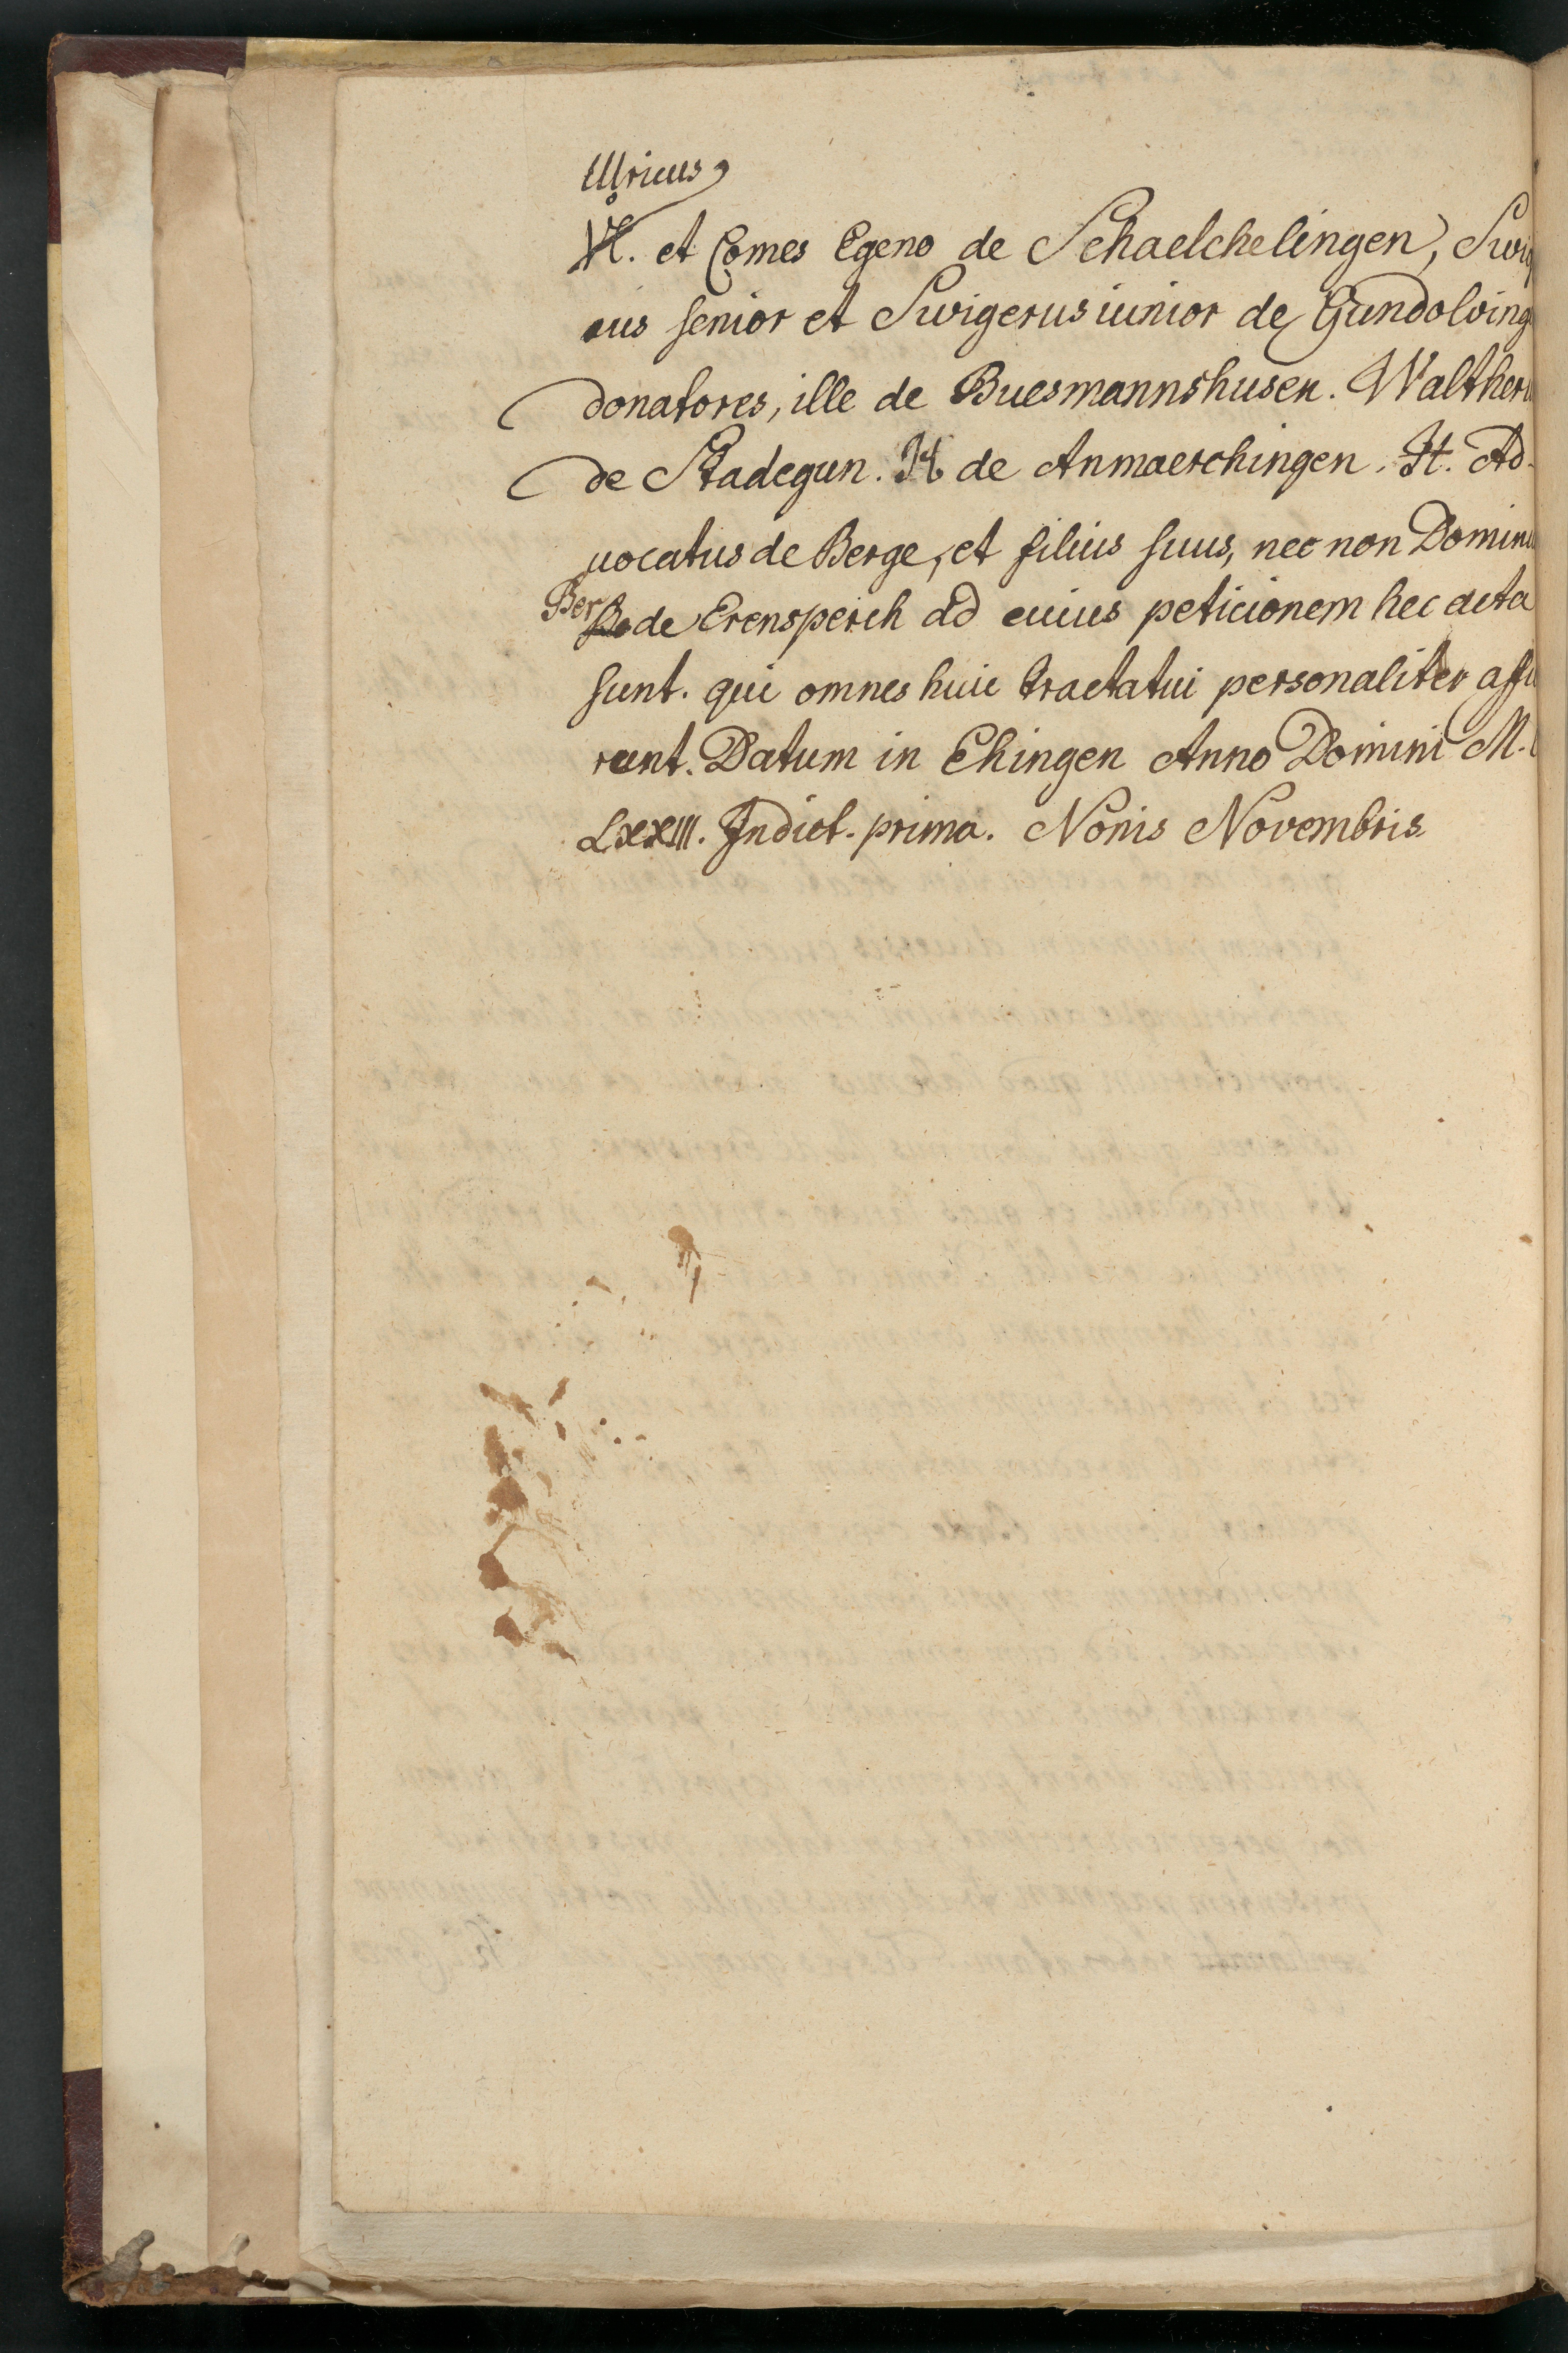 Ulricus
Vl. et Comes Egeno de Schaelchelingen, Swig
rus senior et Swigerus iunior de Gundolving
donatores, ille de Buesmannshusen. Walther
de Stadegun. H de Anmaerchingen. It. Ad-
uocatus de Berge, et filius suus, nec non Domin
Ber de Erensperch ad cuius peticionem hec acta
sunt. qui omnes huic tractatui personaliter affu
runt. Datum in Ehingen Anno Domini M.
LXXIII. Indict. prima. Nonis Novembris